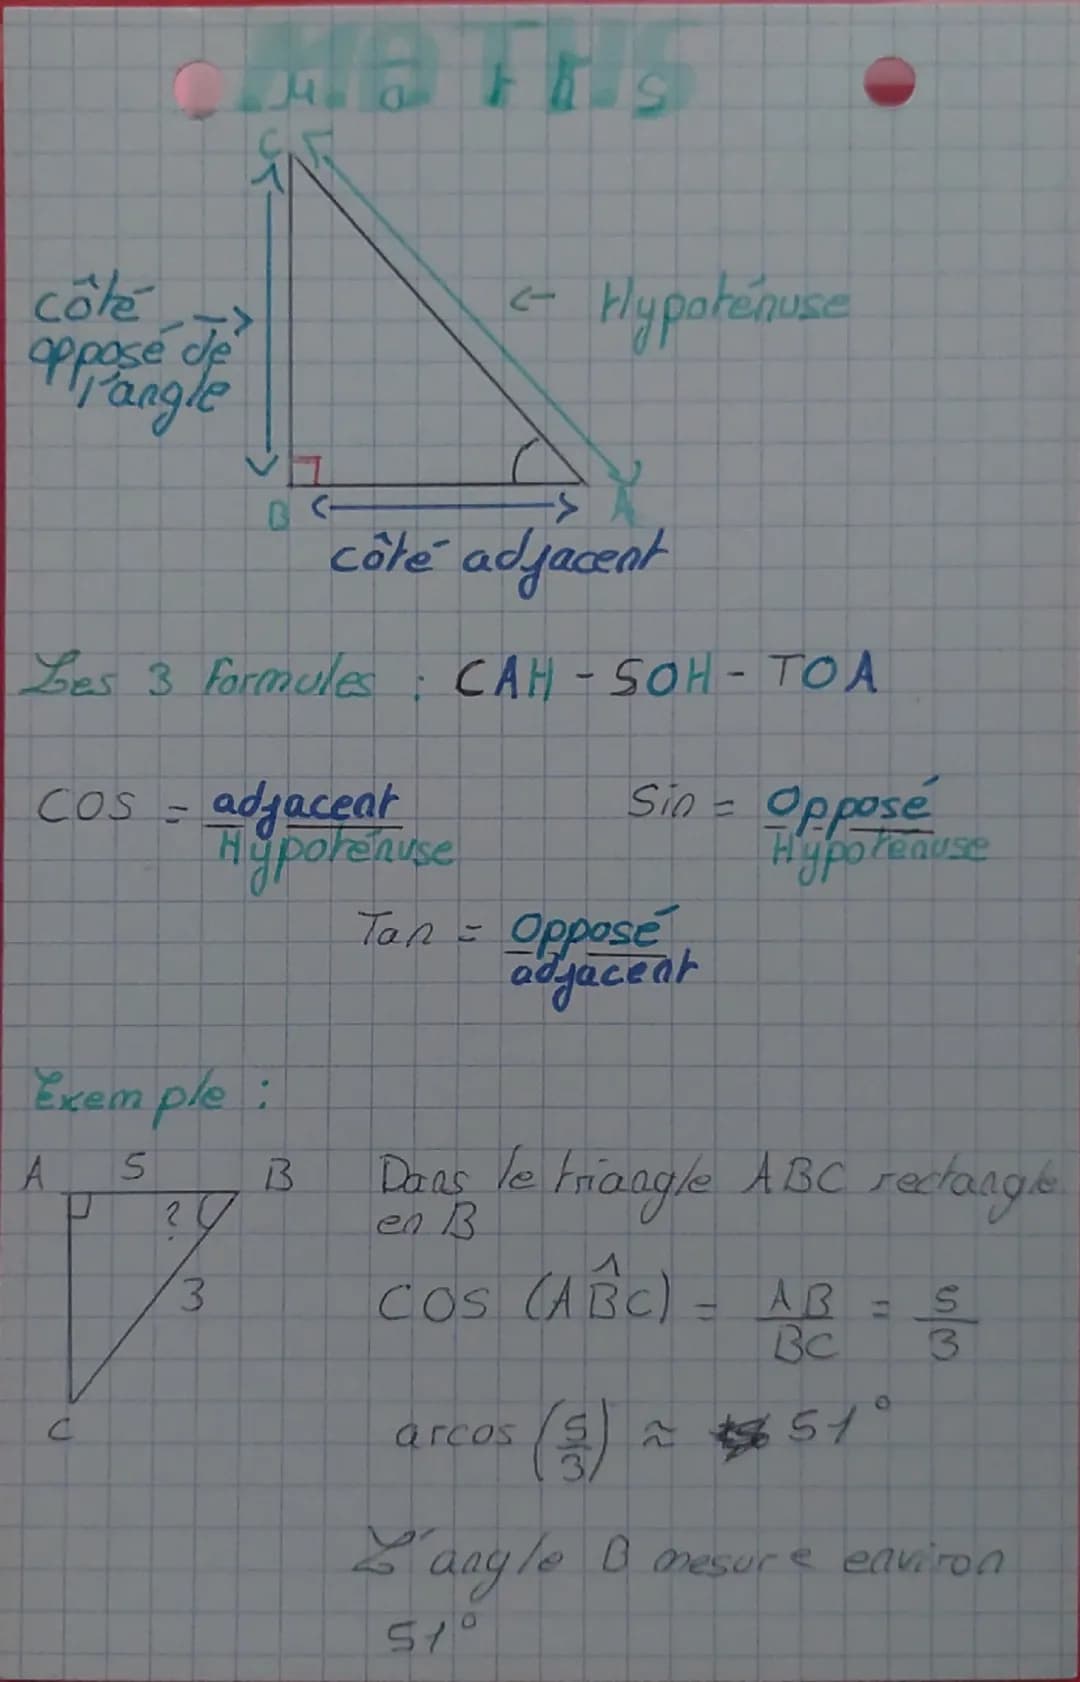 MATHS
Maths
C
côté
opposé de
l'angle
<- Hypoténuse
B
A
côté adjacent
Les 3 Formules : CAH - SOH - TOA
COS = adjacent
Hypoténuse
Sin = Opposé
Hypoténuse
Tan = Opposé
adjacent
Exemple :
A 5 B
?
3
C
Dans le triangle ABC rectangle
en B
COS (AB̂C) = AB/BC = 5/3
arcos (5/3) ≈ 51°
L'angle B mesure environ
51°